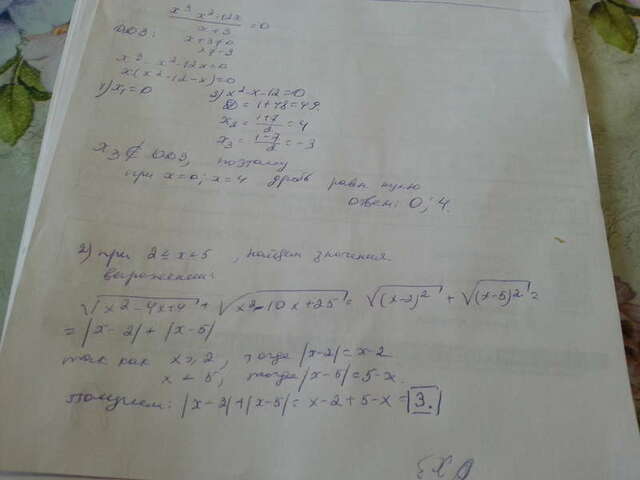 x³ x²-12x
―――――― =0
x+3
ОДЗ: x+3≠0
x≠-3
x³ - x²-12x=0
x(x²-12-x)=0
1) x₁=0 2) x²-x-12=0
D = 1+48=49
x₂ = (1+7)/2 = 4
x₃ = (1-7)/2 = -3
x₃ ∉ ОДЗ, поэтому
при x=0; x=4 дробь равн нулю
ответ: 0; 4.
2) при 2 ≤ x < 5, найдем значения
выражения:
√(x²-4x+4) + √(x²-10x+25) = √(x-2)² + √(x-5)² =
= |x-2| + |x-5|
так как x ≥ 2, тогда |x-2| = x-2
x < 5, тогда |x-5| = 5-x.
Получаем: |x-2|+|x-5| = x-2+5-x = 3.